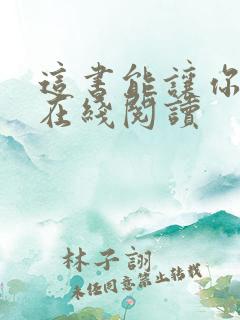 這书能讓你
在綫閱讀
林子詡
未经同意禁止转载